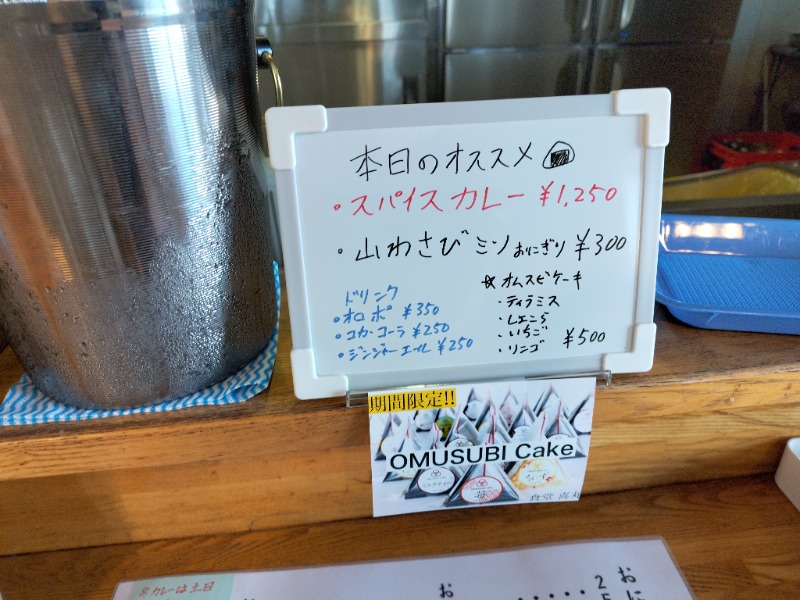 本日のオススメ
・スパイスカレー ¥1,250
・山わさびミソおにぎり ¥300
ドリンク
・オロポ ¥350
・コカ・コーラ ¥250
・ジンジャーエール ¥250
☆オムスビケーキ
・ティラミス
・いちご
・リンゴ ¥500
期間限定!!
OMUSUBI Cake
ミルクティー
苺
食堂
※カレーは土日
お
・・・・・2
おに